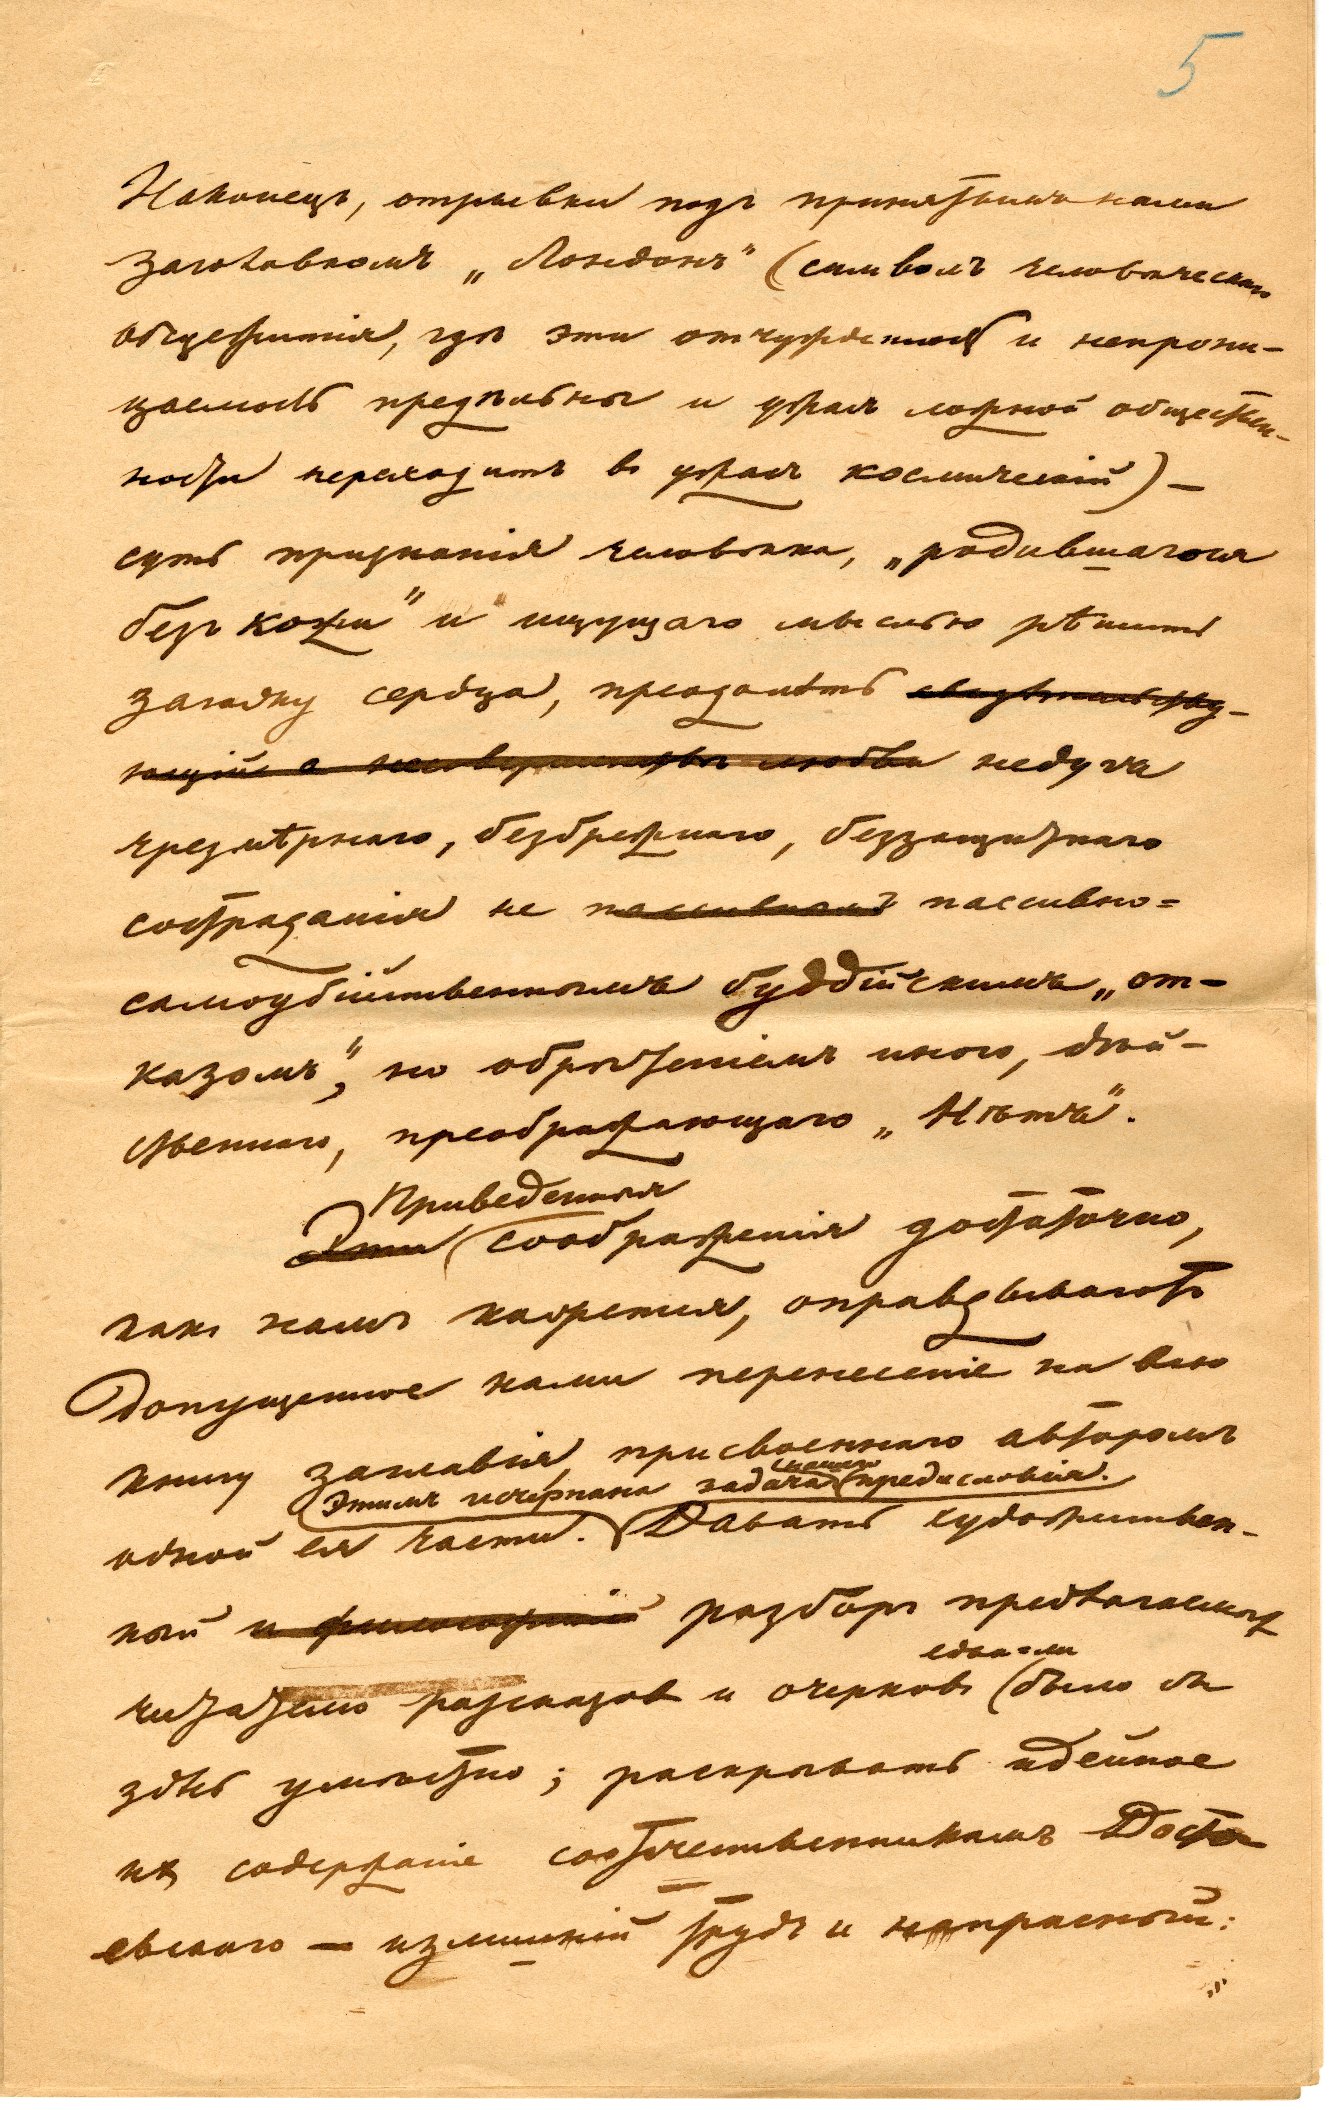 5
Наконецъ, отрывки подъ принятымъ нами
заголовкомъ „Лондонъ“ (символъ человѣческаго
общежитія, гдѣ эти отчужденность и непрони-
цаемость предѣльны и ужасъ ложной обществен-
ности переходитъ въ ужасъ космическій) —
суть признанія человѣка, „родившагося
безъ кожи“ и ищущаго мыслью рѣшить
загадку сердца, преодолѣть свидѣтельству-
ющій о несовершенствѣ любви недуга
чрезмѣрнаго, безбрежнаго, беззащитнаго
состраданія не пассивнымъ пассивно=
самоубійственнымъ буддійскимъ „от-
казомъ“, но обрѣтеніемъ иного, дѣй-
ственнаго, преображающаго „Нѣтъ“.
Приведенныя
Эти соображенія достаточно,
какъ намъ кажется, оправдываютъ
допущенное нами перенесеніе на всю
книгу заглавія, присвоеннаго авторомъ
Этимъ исчерпана задача нашего предисловія.
одной ея части. Давать художествен-
ный и философскій разборъ предлагаемыхъ
едва-ли
читателю разсказовъ и очерковъ было бы
здѣсь умѣстно; раскрывать идейное
ихъ содержаніе соотечественникамъ Досто
евскаго — излишній трудъ и напрасный: